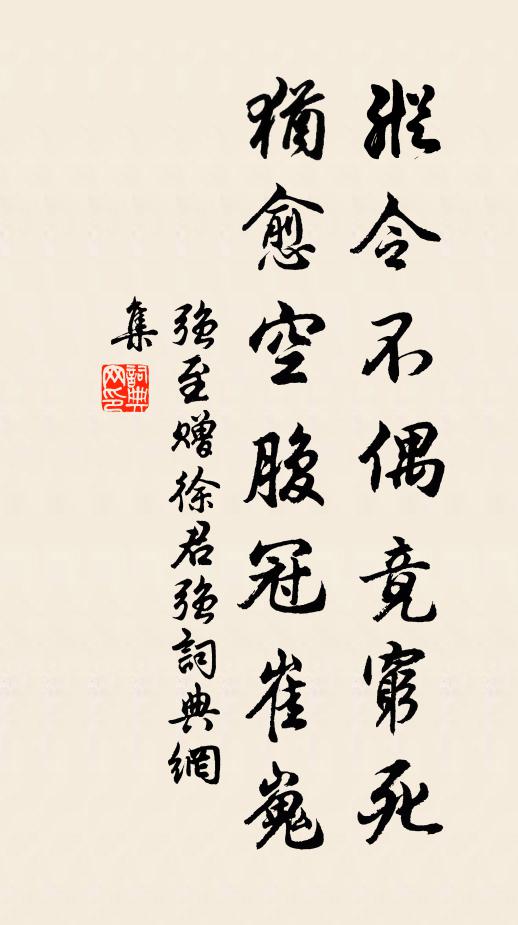 縱令不偶竟窮死
猶愈空腹冠崔嵬
強至贈徐君強詞典網
集
詞典
网印